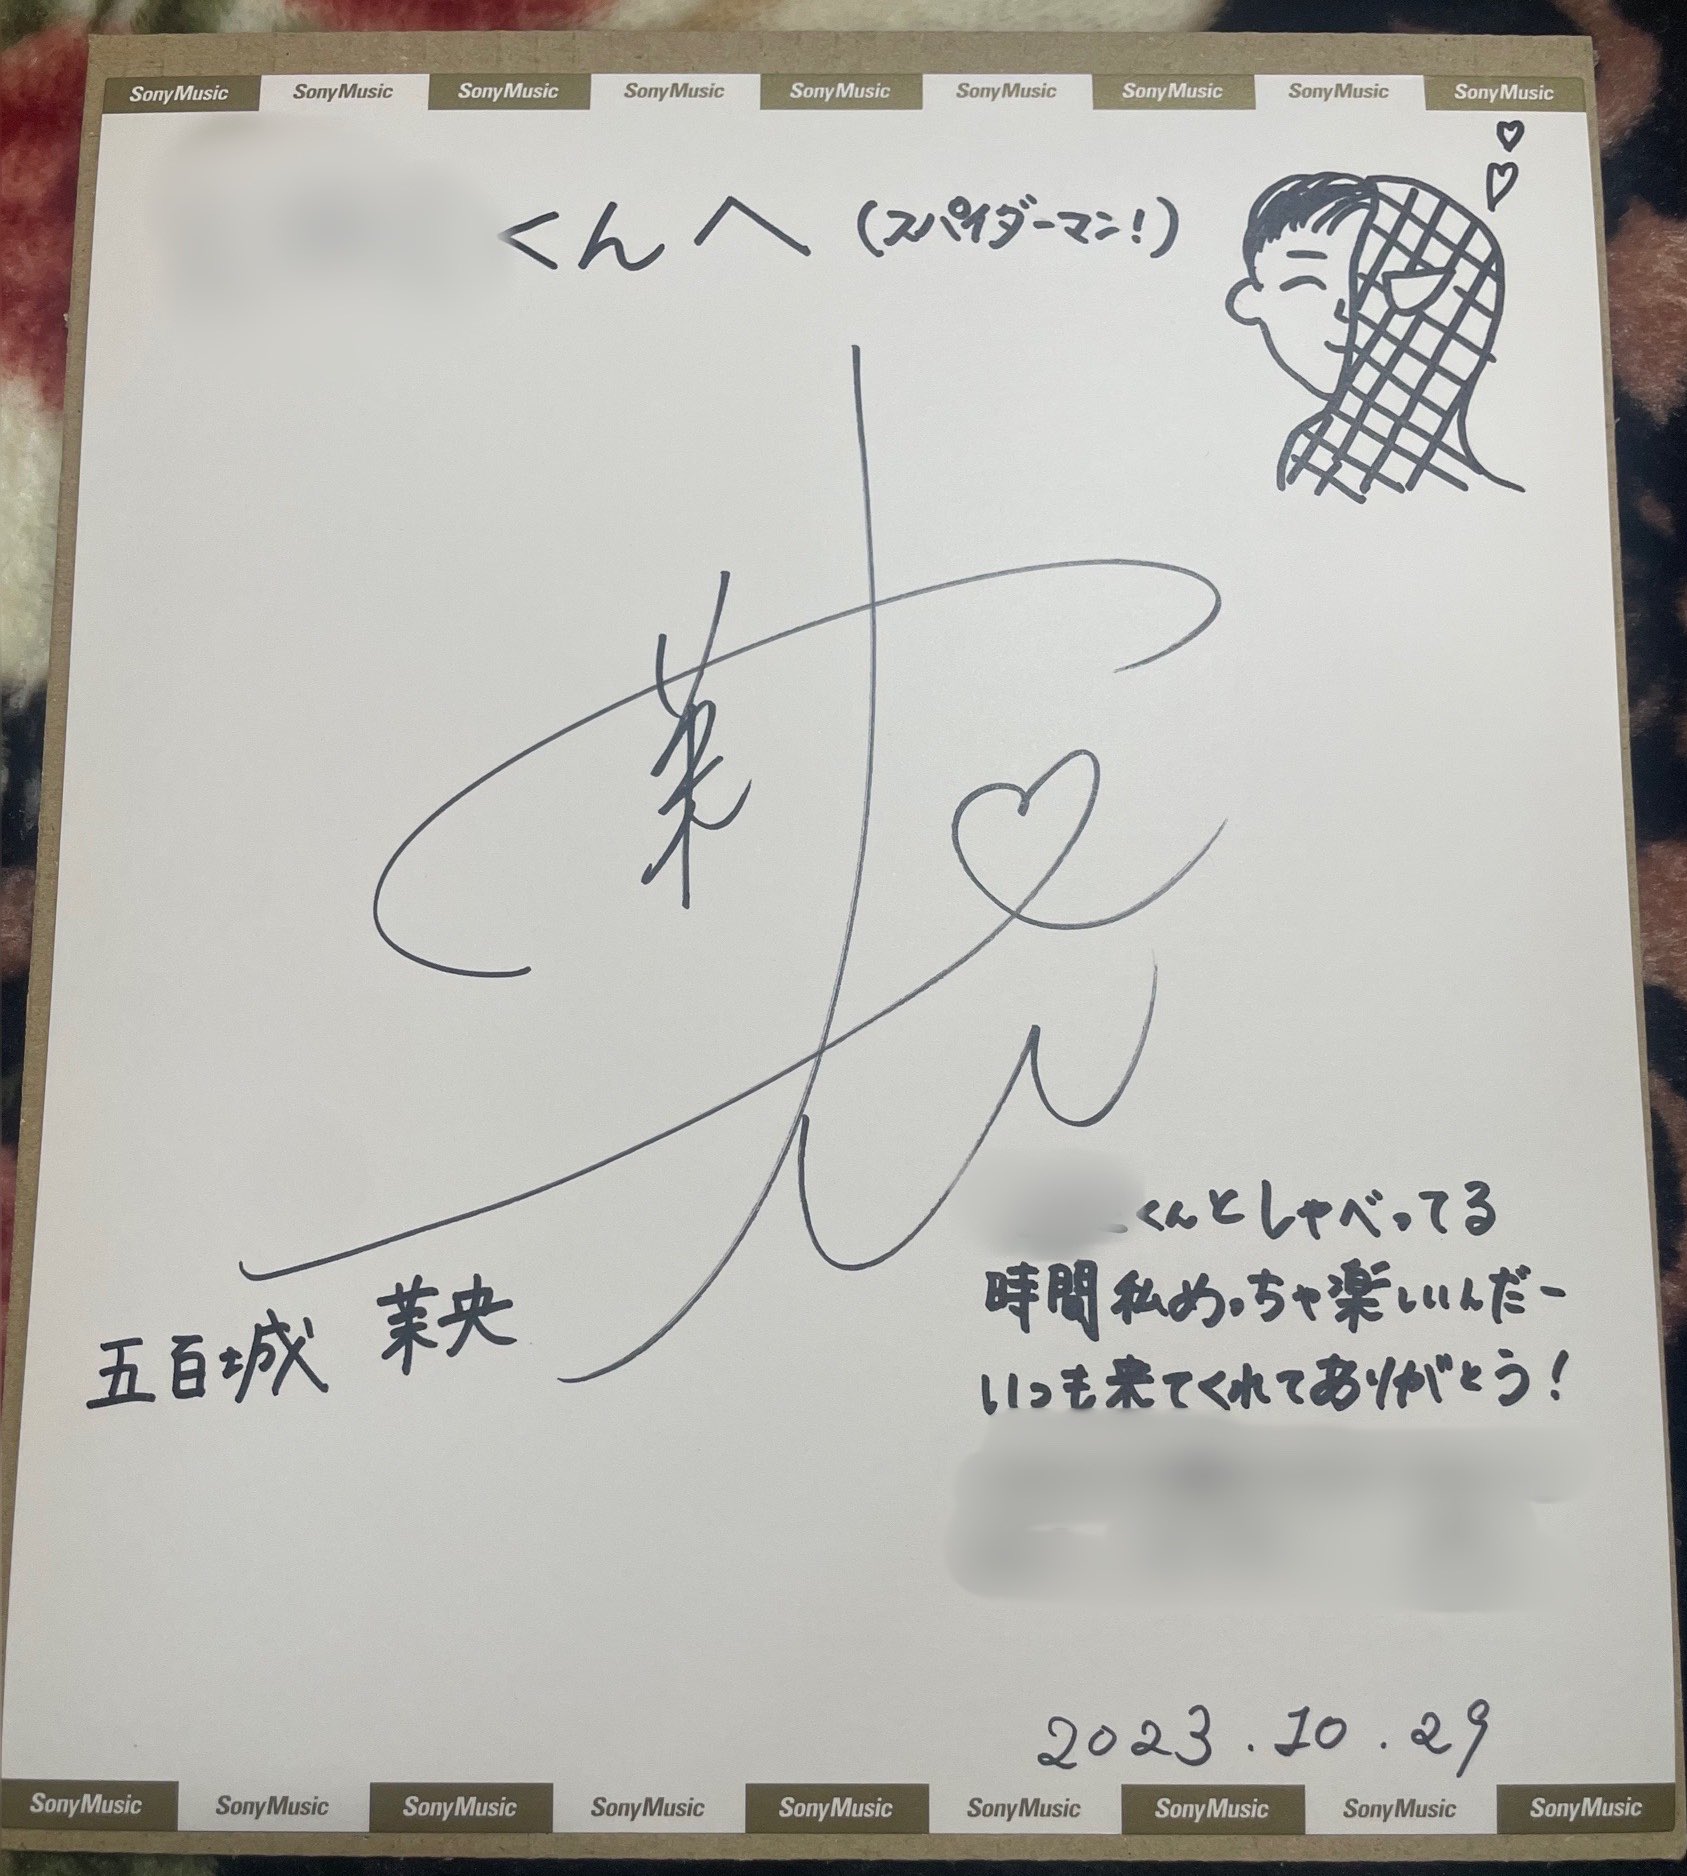 SonyMusic SonyMusic SonyMusic SonyMusic SonyMusic SonyMusic SonyMusic SonyMusic SonyMusic
くんへ (スパイダーマン!)
茉
五百城 茉央
くんとしゃべってる
時間私めっちゃ楽しいんだー
いつも来てくれてありがとう!
2023.10.29
SonyMusic SonyMusic SonyMusic SonyMusic SonyMusic SonyMusic SonyMusic SonyMusic SonyMusic